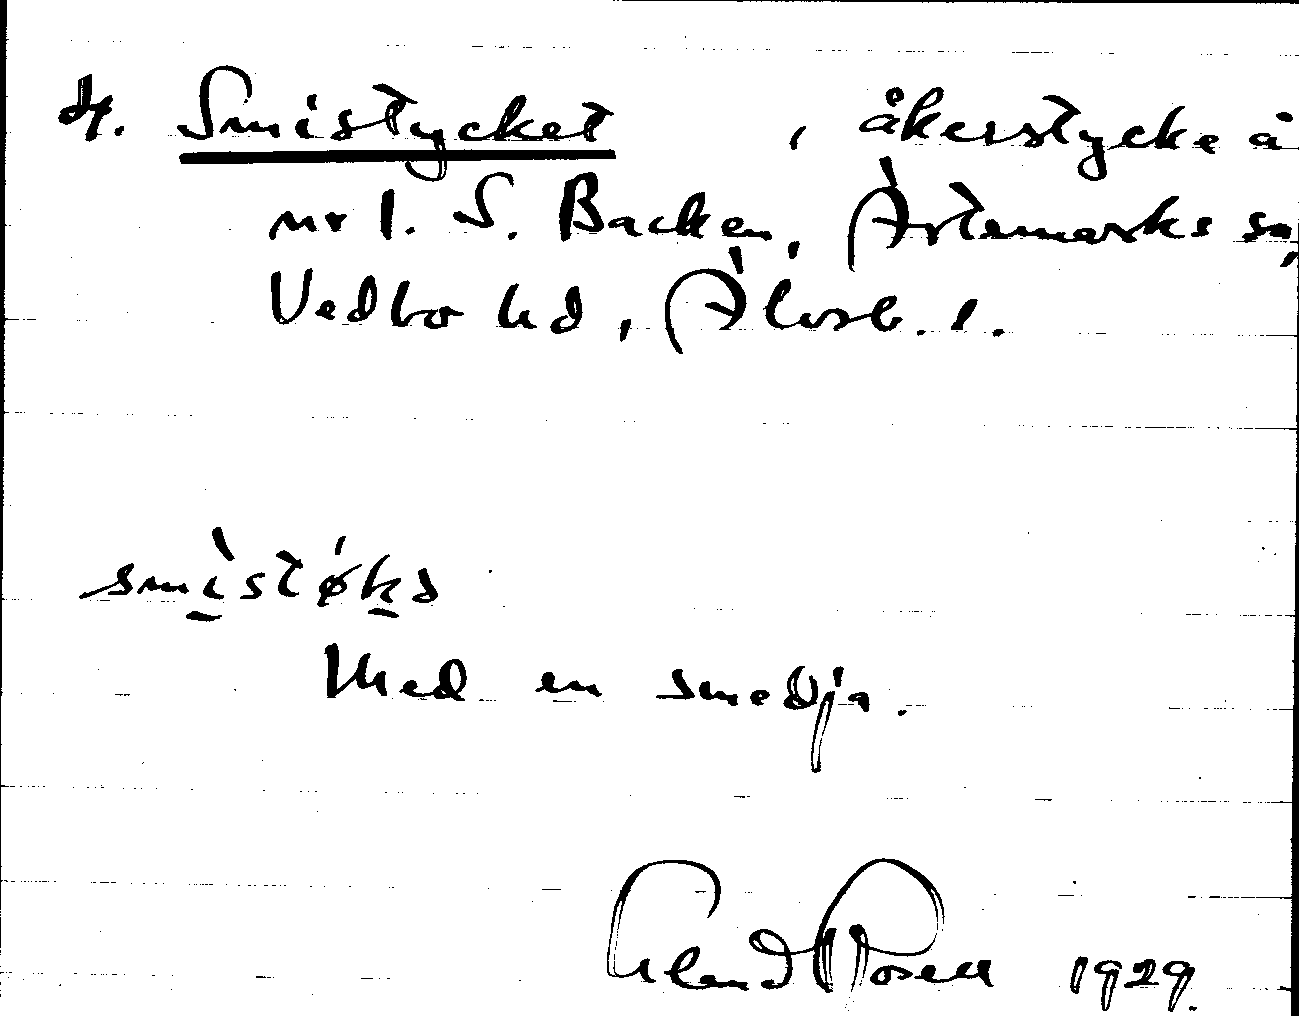 4. Smistycket, åkerstycke å
nr 1. S. Backen, Ärtemarks sn,
Vedbo hd, Älvsb. l.
smìstǿkə
Med en smedja.
Erland Rosell 1929.